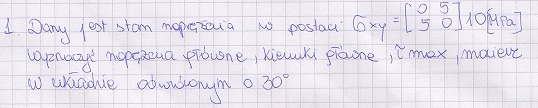 1. Dany jest stan naprężenia w postaci σxy = [0 5 5 0] 10 [MPa]
wyznaczyć naprężenia główne, kierunki główne, τ max, macierz
w układzie obróconym o 30°